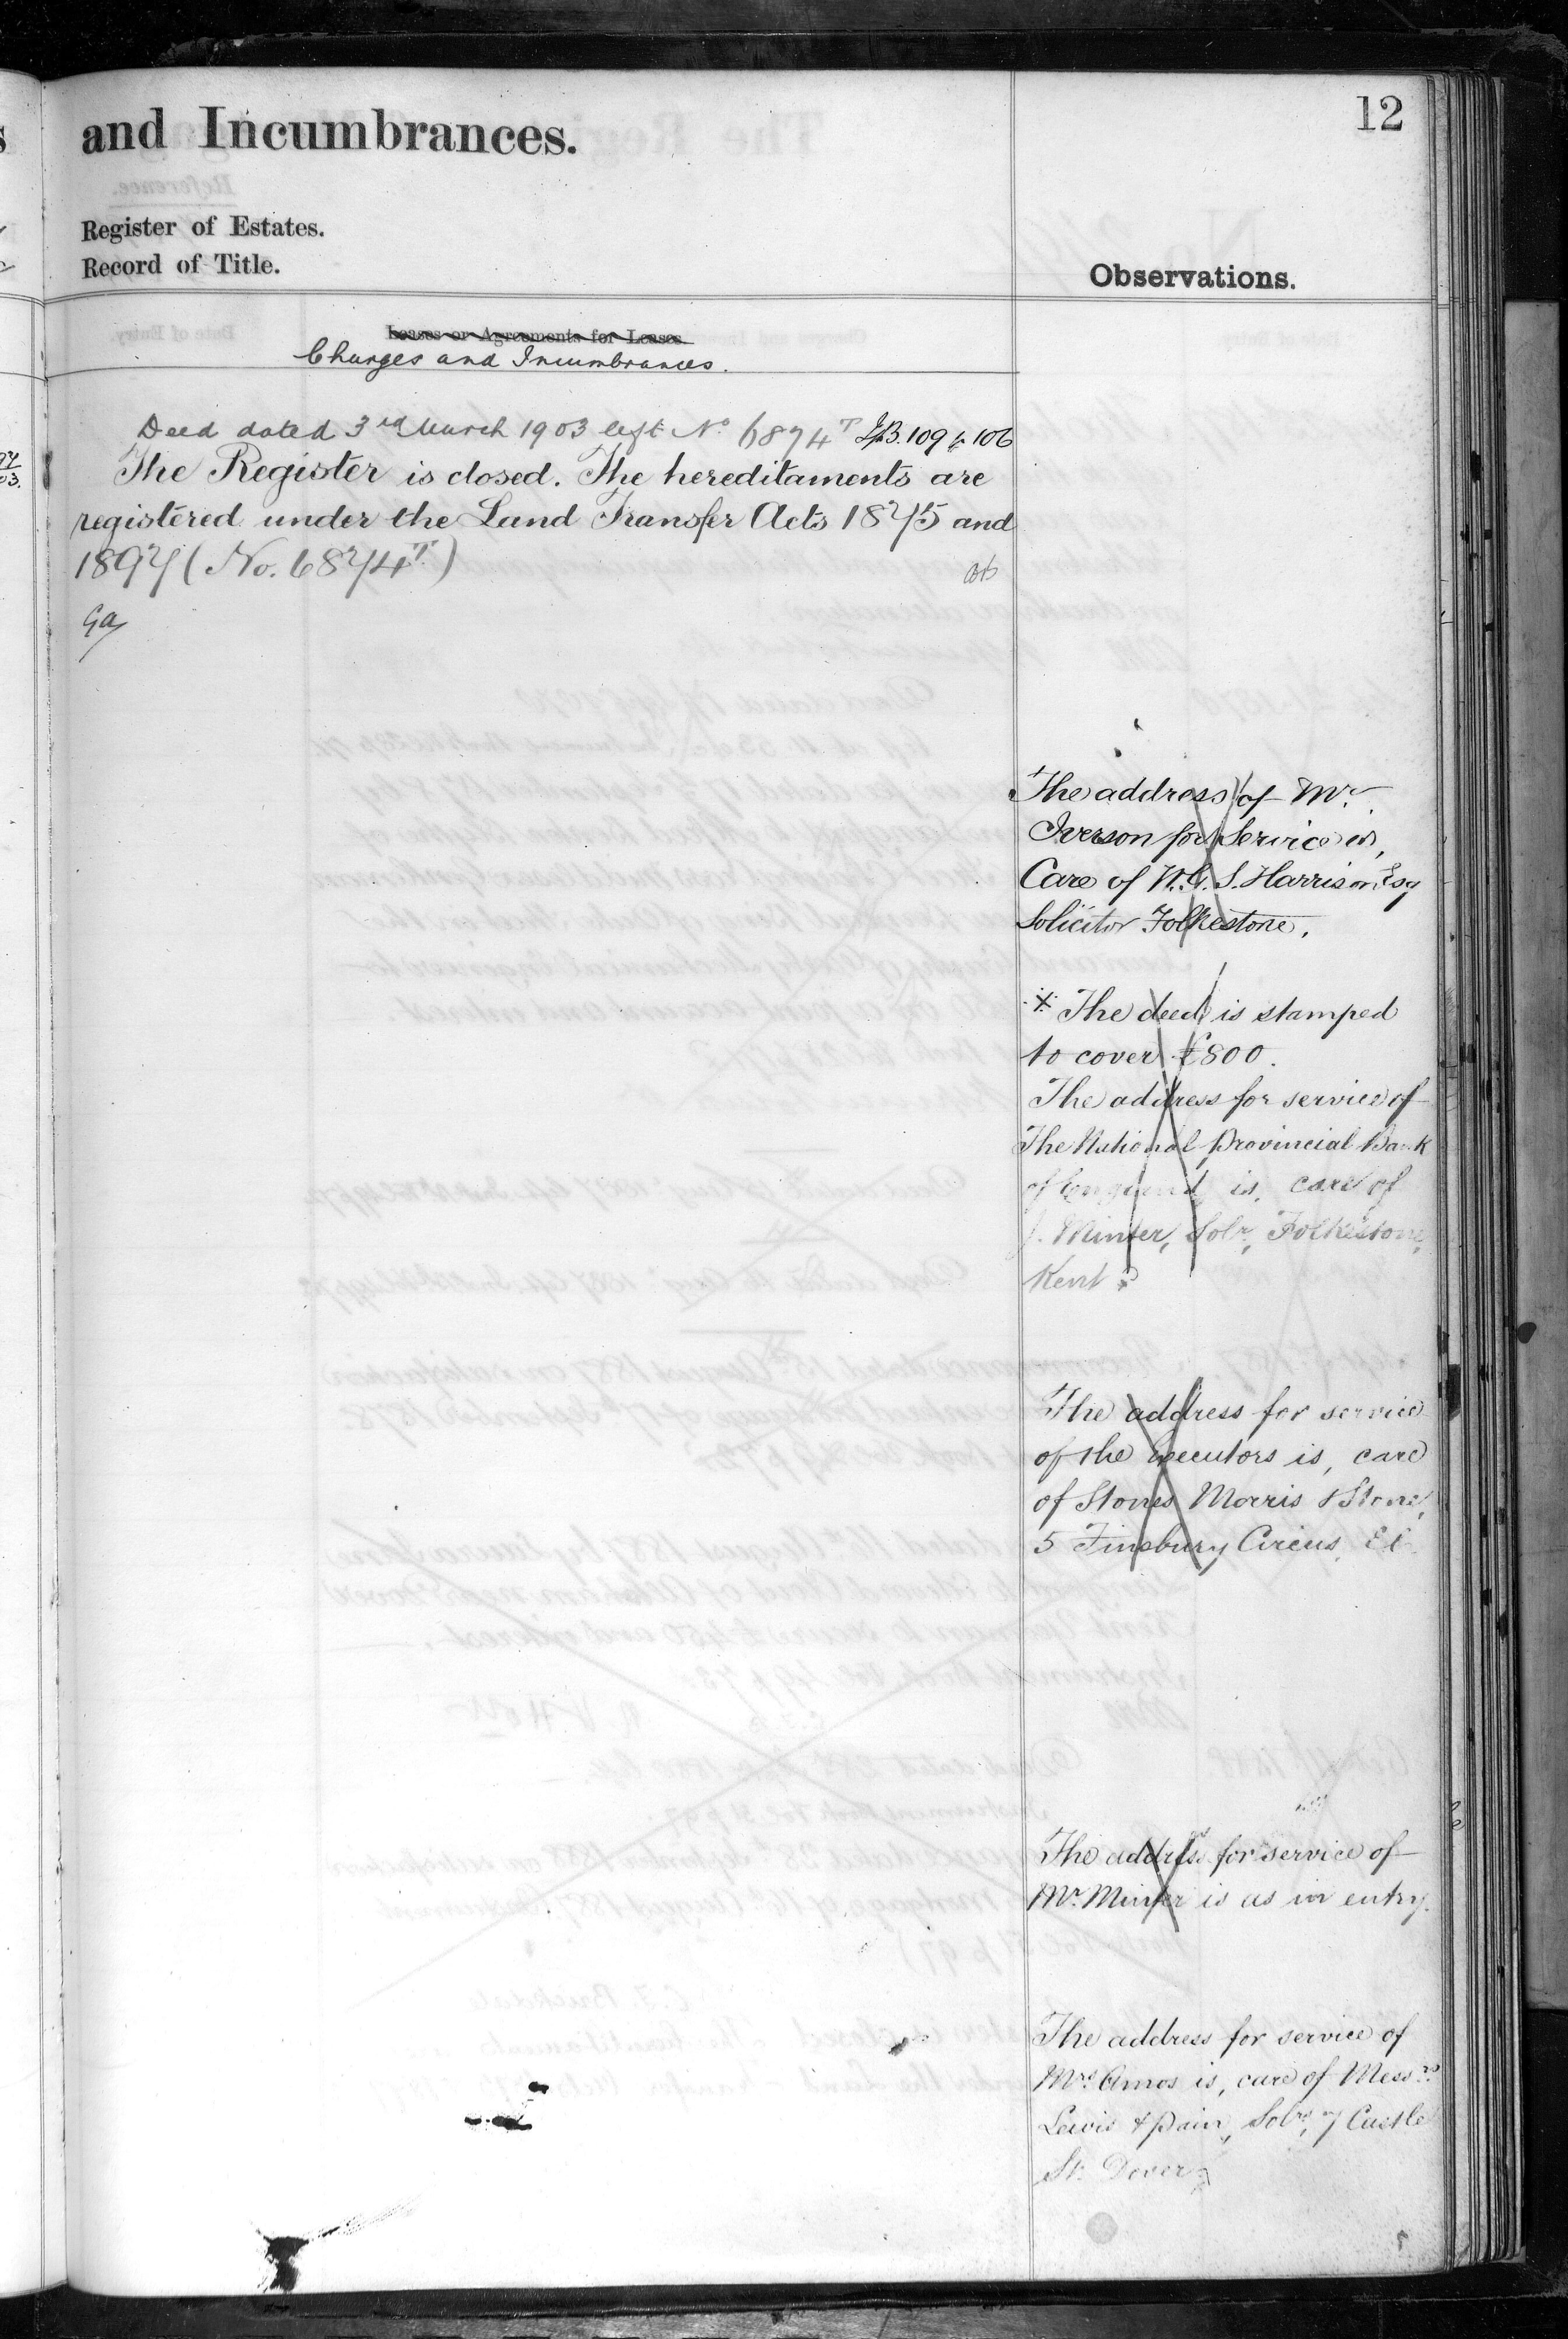 12
and Incumbrances.
Register of Estates.
Record of Title.
Observations.
Leases or Agreements for Leases.
Charges and Incumbrances.
Deed dated 3rd March 1903 left No. 6874T IB. 109 p 106
The Register is closed. The hereditaments are
registered under the Land Transfer Acts 1875 and
1897 (No. 6874T)
The address of Mr.
Iverson for Service is,
Care of W.G.S. Harrison Esq
Solicitor Folkestone.
* The deed is stamped
to cover £800.
The address for service of
The National Provincial Bank
of England is, care of
J. Minter, Solr, Folkestone,
Kent
The address for service
of the Executors is, care
of Stones Morris & Stone,
5 Finsbury Circus, EC
The address for service of
Mr. Minter is as in entry.
The address for service of
Mrs. Amos is, care of Messrs
Lewis & Pain, Solrs, 7 Castle
St. Dover